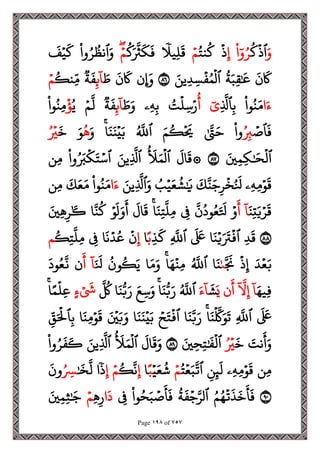 وَٱذْكُرُوٓا۟ إِذْ كُنتُمْ قَلِيلًا فَكَثَّرَكُمْ ۖ وَٱنظُرُوا۟ كَيْفَ
كَانَ عَٰقِبَةُ ٱلْمُفْسِدِينَ ٨٦ وَإِن كَانَ طَآئِفَةٌ مِّنكُمْ
ءَامَنُوا۟ بِٱلَّذِىٓ أُرْسِلْتُ بِهِۦ وَطَآئِفَةٌ لَّمْ يُؤْمِنُوا۟
فَٱصْبِرُوا۟ حَتَّىٰ يَحْكُمَ ٱللَّهُ بَيْنَنَا ۚ وَهُوَ خَيْرُ
ٱلْحَٰكِمِينَ ٨٧ ۞ قَالَ ٱلْمَلَأُ ٱلَّذِينَ ٱسْتَكْبَرُوا۟ مِن
قَوْمِهِۦ لَنُخْرِجَنَّكَ يَٰشُعَيْبُ وَٱلَّذِينَ ءَامَنُوا۟ مَعَكَ مِن
قَرْيَتِنَآ أَوْ لَتَعُودُنَّ فِى مِلَّتِنَا ۚ قَالَ أَوَلَوْ كُنَّا كَٰرِهِينَ
٨٨ قَدِ ٱفْتَرَيْنَا عَلَى ٱللَّهِ كَذِبًا إِنْ عُدْنَا فِى مِلَّتِكُم
بَعْدَ إِذْ نَجَّىٰنَا ٱللَّهُ مِنْهَا ۚ وَمَا يَكُونُ لَنَآ أَن نَّعُودَ
فِيهَآ إِلَّآ أَن يَشَآءَ ٱللَّهُ رَبُّنَا ۚ وَسِعَ رَبُّنَا كُلَّ شَىْءٍ عِلْمًا ۚ
عَلَى ٱللَّهِ تَوَكَّلْنَا ۚ رَبَّنَا ٱفْتَحْ بَيْنَنَا وَبَيْنَ قَوْمِنَا بِٱلْحَقِّ
وَأَنتَ خَيْرُ ٱلْفَٰتِحِينَ ٨٩ وَقَالَ ٱلْمَلَأُ ٱلَّذِينَ كَفَرُوا۟
مِن قَوْمِهِۦ لَئِنِ ٱتَّبَعْتُمْ شُعَيْبًا إِنَّكُمْ إِذًا لَّخَٰسِرُونَ
٩٠ فَأَخَذَتْهُمُ ٱلرَّجْفَةُ فَأَصْبَحُوا۟ فِى دَارِهِمْ جَٰثِمِينَ
Page ١٩٨ of ٧٥٧